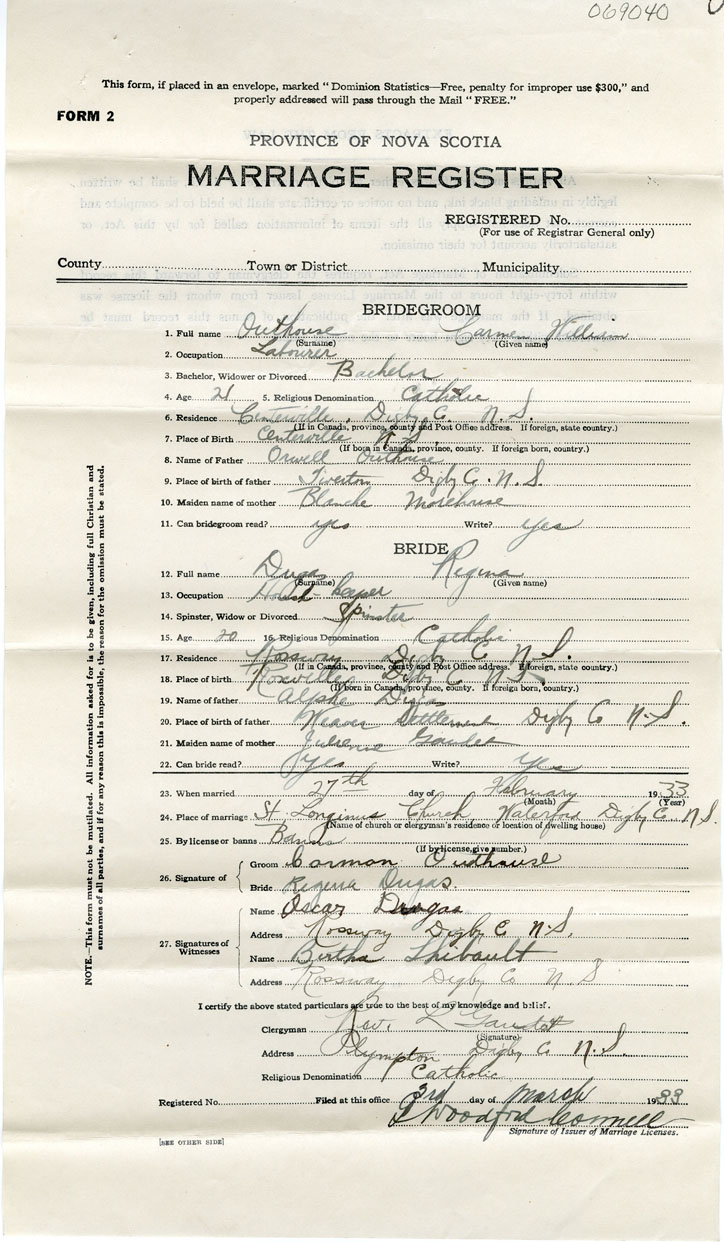 069040
This form, if placed in an envelope, marked "Dominion Statistics—Free, penalty for improper use $300," and
properly addressed will pass through the Mail "FREE."
FORM 2
PROVINCE OF NOVA SCOTIA
MARRIAGE REGISTER
REGISTERED No.
(For use of Registrar General only)
County Town or District Municipality
BRIDEGROOM
1. Full name Outhouse Carmen Willison
(Surname) (Given name)
2. Occupation Labourer
3. Bachelor, Widower or Divorced Bachelor
4. Age 21 5. Religious Denomination Catholic
6. Residence Centerville, Digby C. N.S.
(If in Canada, province, county and Post Office address. If foreign, state country.)
7. Place of Birth Centerville N.S.
(If born in Canada, province, county. If foreign born, country.)
8. Name of Father Orwell Outhouse
9. Place of birth of father Tiverton Digby C. N.S
10. Maiden name of mother Blanche Morehouse
11. Can bridegroom read? yes Write? yes
BRIDE
12. Full name Dugas Regina
(Surname) (Given name)
13. Occupation House-keeper
14. Spinster, Widow or Divorced Spinster
15. Age 20 16. Religious Denomination Catholic
17. Residence Rossway Digby C N.S.
(If in Canada, province, county and Post Office address. If foreign, state country.)
18. Place of birth Roxville Digby C N.S.
(If born in Canada, province, county. If foreign born, country.)
19. Name of father Alphé Dugas
20. Place of birth of father Weaver Settlement Digby C N.S.
21. Maiden name of mother Julienne Gaudet
22. Can bride read? Yes Write? Yes
23. When married 27th day of February 1933
(Month) (Year)
24. Place of marriage St. Longinus Church, Waterford Digby C. N.S.
(Name of church or clergyman's residence or location of dwelling house)
25. By license or banns Banns
(If by license, give number.)
26. Signature of Groom Carman Outhouse
Bride Regina Dugas.
27. Signatures of Witnesses
Name Oscar Dugas
Address Rossway Digby C N.S.
Name Bertha Thibault
Address Rossway Digby C N S
I certify the above stated particulars are true to the best of my knowledge and belief.
Clergyman Rev. L Gaudet
(Signature)
Address Plympton Digby C N.S.
Religious Denomination Catholic
Registered No. Filed at this office 3rd day of March 1933
Woodford Connell
Signature of Issuer of Marriage Licenses.
[SEE OTHER SIDE]
NOTE.—This form must not be mutilated. All information asked for is to be given, including full Christian and
surnames of all parties, and if for any reason this is impossible, the reason for the omission must be stated.